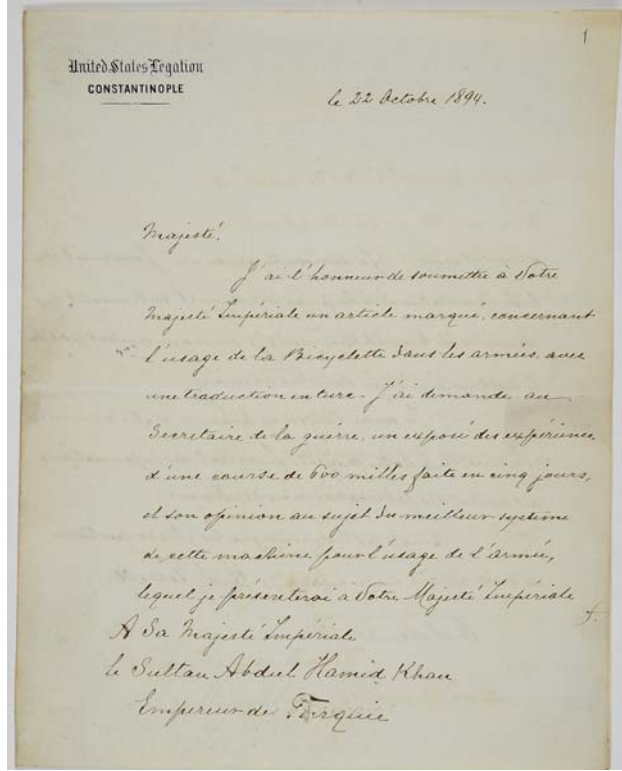 1
United States Legation
CONSTANTINOPLE
le 22 Octobre 1894.
Majesté.
J'ai l'honneur de soumettre à Votre
Majesté Impériale un article marqué, concernant
l'usage de la Bicyclette dans les armées, avec
une traduction en turc. J'ai demande au
Secretaire de la guérre, un exposé des expérience
d'une course de 600 milles faite en cinq jours,
et son opinion au sujet du meilleur système
de cette machine pour l'usage de l'armée,
lequel je présenterai à Votre Majesté Impériale
A Sa Majesté Impériale
le Sultan Abdul Hamid Khan
Empereur de Turquie